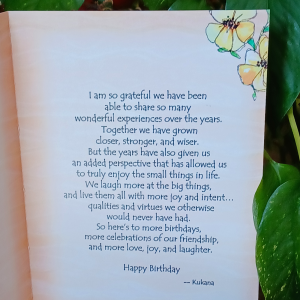 I am so grateful we have been
able to share so many
wonderful experiences over the years.
Together we have grown
closer, stronger, and wiser.
But the years have also given us
an added perspective that has allowed us
to truly enjoy the small things in life.
We laugh more at the big things,
and live them all with more joy and intent...
qualities and virtues we otherwise
would never have had.
So here's to more birthdays,
more celebrations of our friendship,
and more love, joy, and laughter.
Happy Birthday
— Kukana